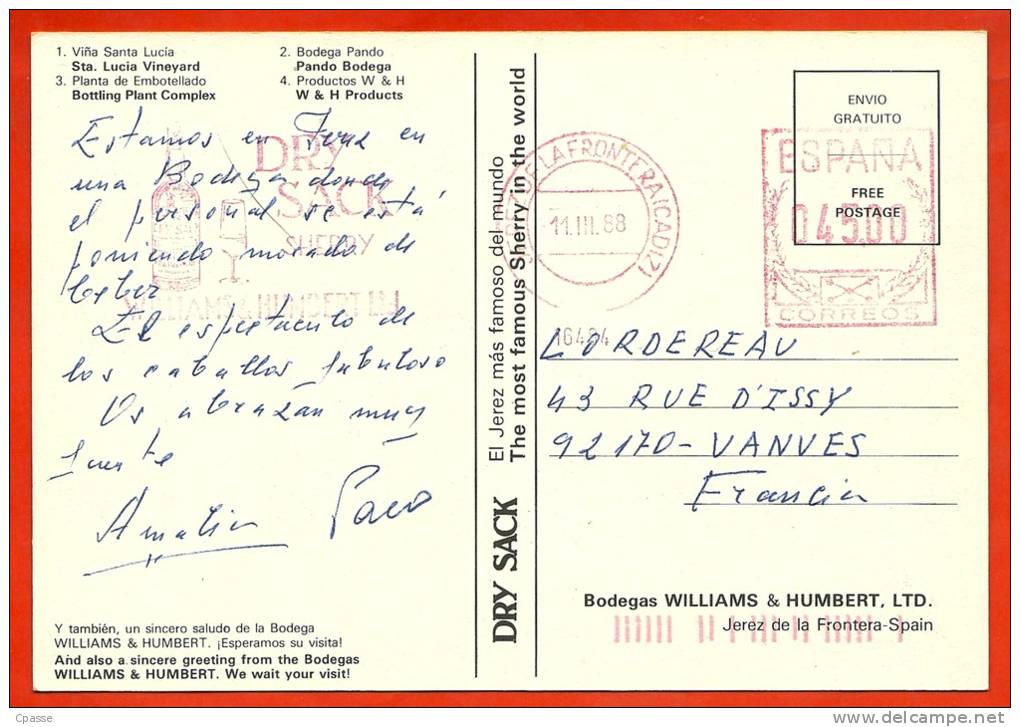 1. Viña Santa Lucía
Sta. Lucia Vineyard
2. Bodega Pando
Pando Bodega
3. Planta de Embotellado
Bottling Plant Complex
4. Productos W & H
W & H Products
Estamos en Jerez en
una Bodega donde
el personal se está
poniendo morado de
beber
El espectaculo de
los caballos fabuloso
Os abrazan muy
fuerte
Amalia Paco
DRY
SACK
SHERRY
WILLIAMS & HUMBERT Ltd
Y también, un sincero saludo de la Bodega
WILLIAMS & HUMBERT. ¡Esperamos su visita!
And also a sincere greeting from the Bodegas
WILLIAMS & HUMBERT. We wait your visit!
DRY SACK
El Jerez más famoso del mundo
The most famous Sherry in the world
JEREZ DE LA FRONTERA (CADIZ)
11.III.88
ENVIO
GRATUITO
FREE
POSTAGE
ESPAÑA
04500
CORREOS
16484
LORDEREAU
43 RUE D'ISSY
92170-VANVES
Francia
Bodegas WILLIAMS & HUMBERT, LTD.
Jerez de la Frontera-Spain
Cpasse
delcampe.net